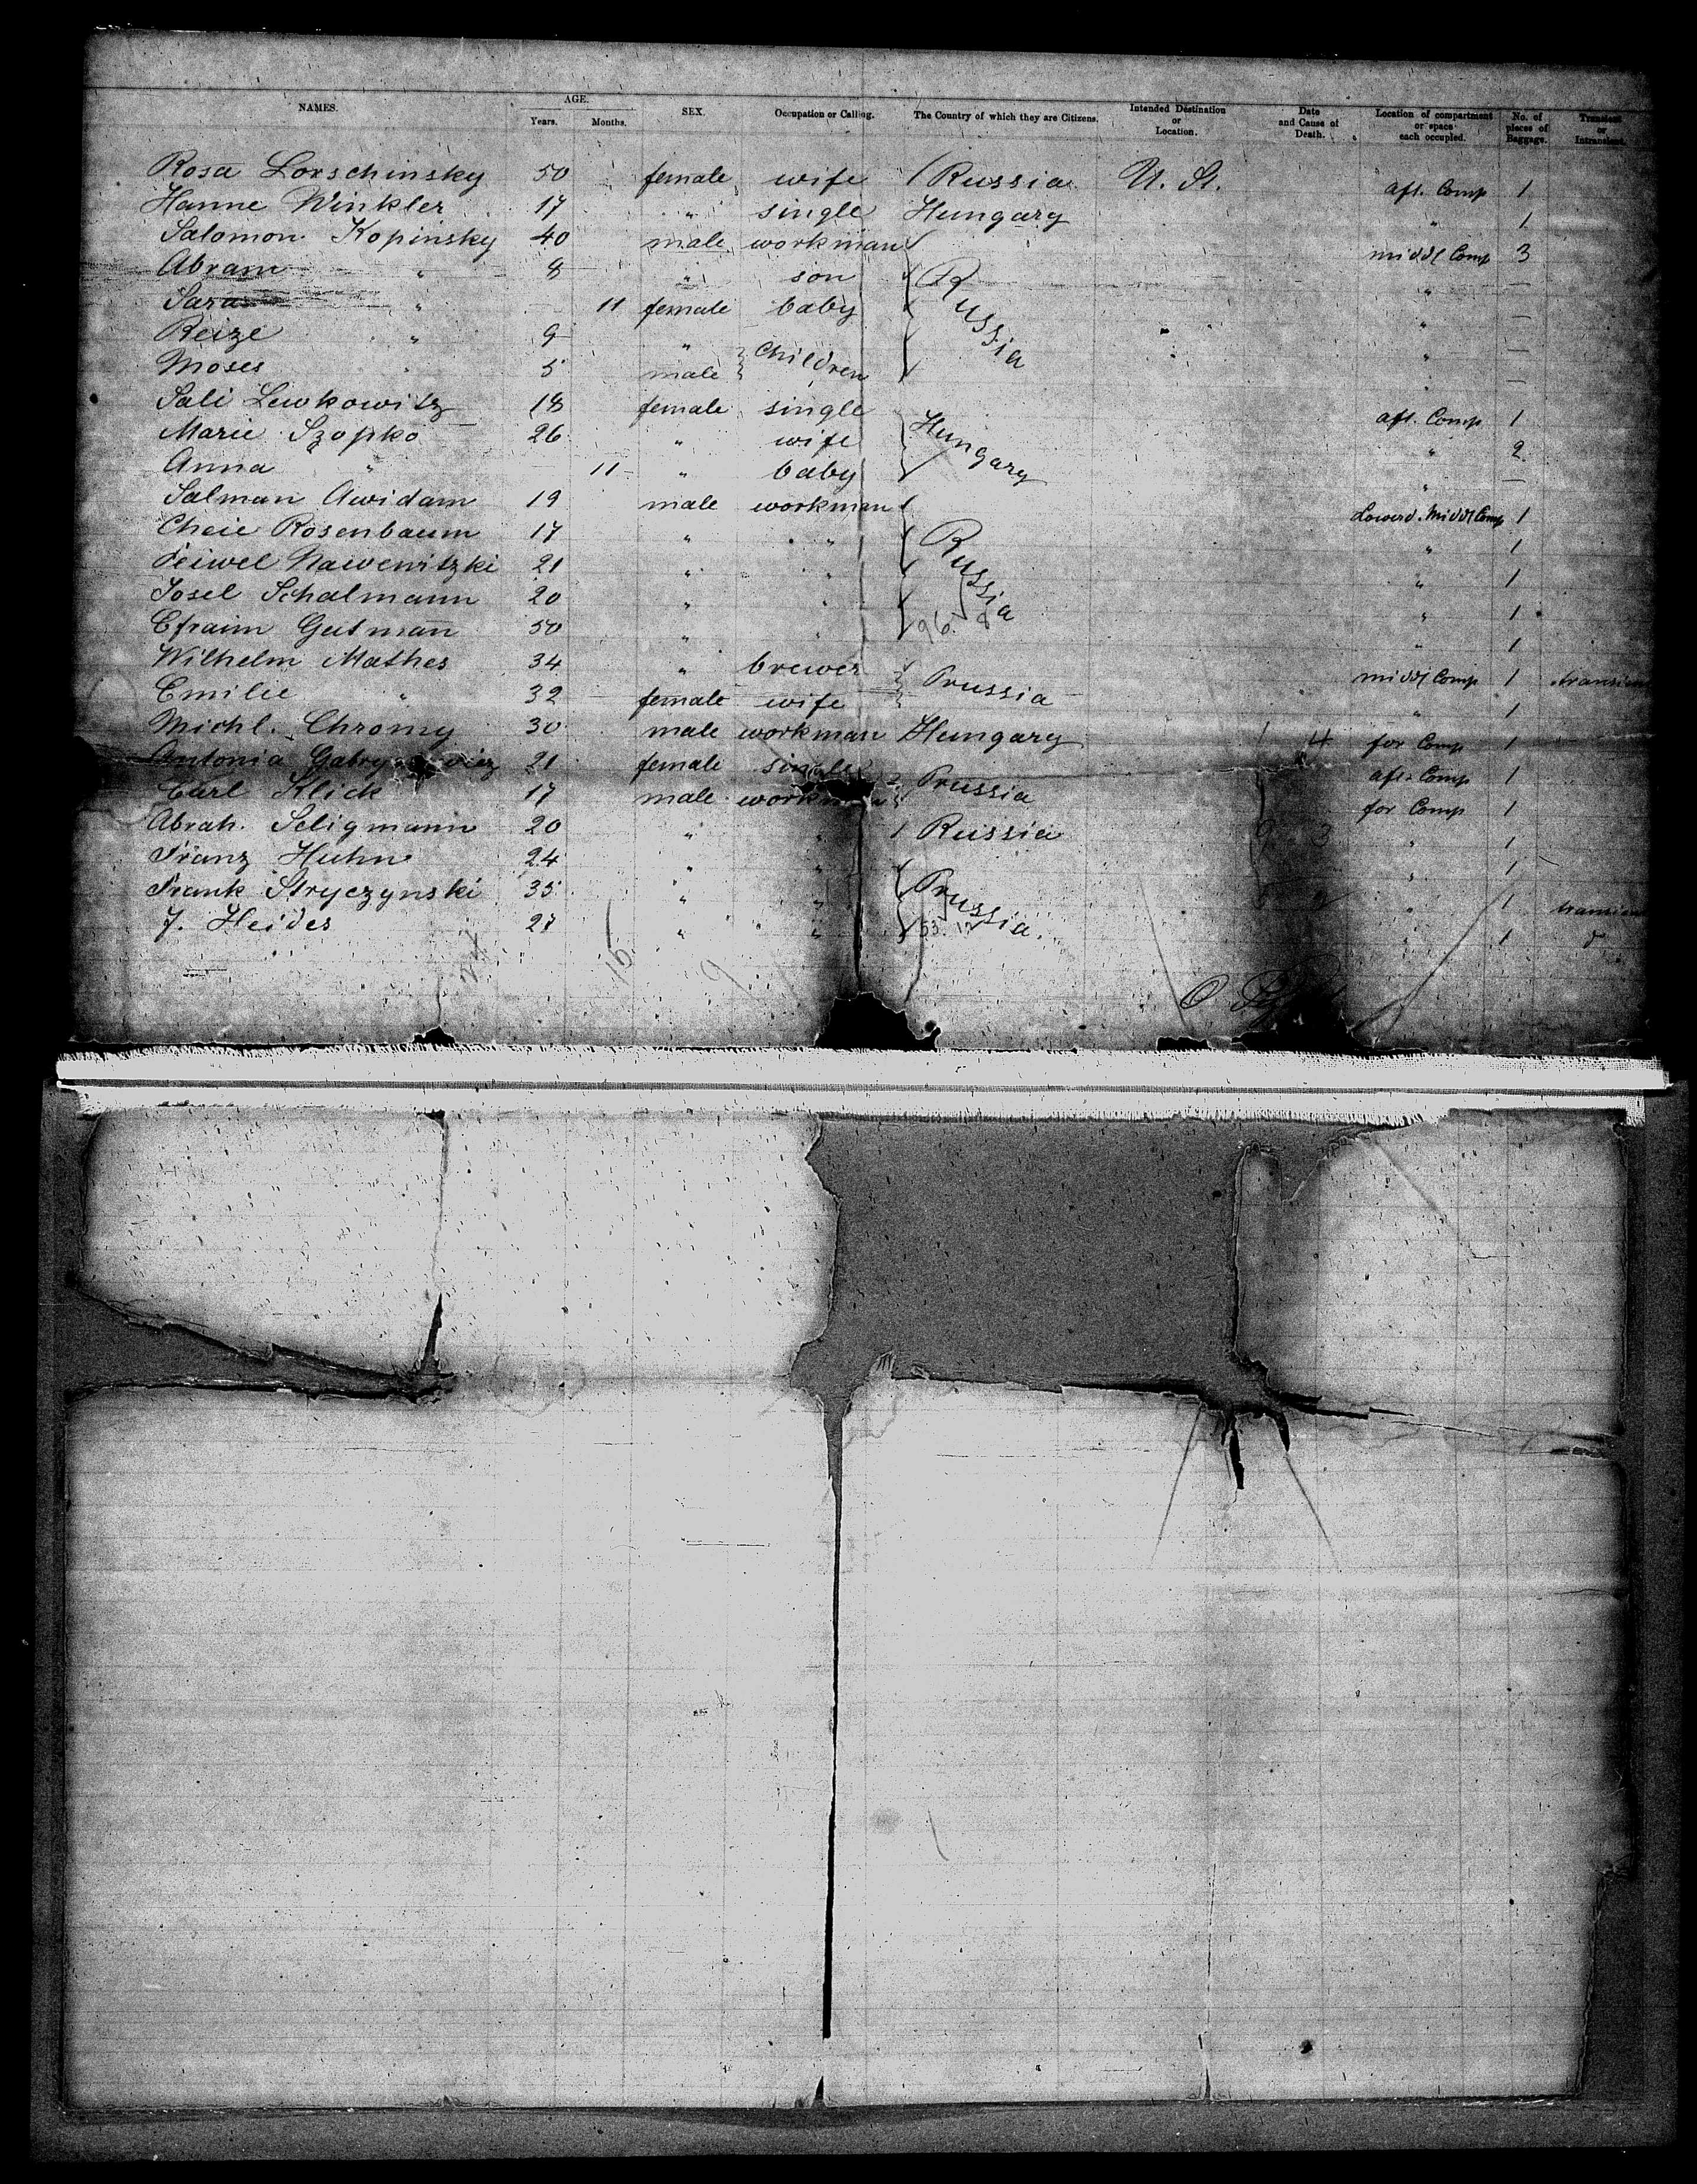 NAMES. AGE. Years. Months. SEX. Occupation or Calling. The Country of which they are Citizens. Intended Destination or Location. Date and Cause of Death. Location of compartment or space each occupied. No. of pieces of Baggage. Transient or Intransient.
Rosa Lorschinsky 50 female wife Russia U. St. aft. Comp 1
Hanne Winkler 17 " single Hungary " 1
Salomon Kopinsky 40 male workman middl Comp 3
Abram " 8 " son Russia " —
Sara " 11 female baby " —
Reize " 9 " Children " —
Moses " 5 male " —
Sali Lewkowitz 18 female single Hungary aft. Comp 1
Marie Szopko 26 " wife " 2
Anna " 11 " baby " —
Salman Awidam 19 male workman Russia Lowerd. middl Comp 1
Cheie Rosenbaum 17 " " " 1
Feiwel Nawenitzki 21 " " " 1
Josel Schalmann 20 " " " 1
Efraim Gutman 50 " " 96. " 1
Wilhelm Mathes 34 " brewer Prussia middl Comp 1
Emilie " 32 female wife " 1
Michl. Chromy 30 male workman Hungary 1 4 for Comp 1
Antonia 21 female single Prussia aft. Comp 1
Carl Klick 17 male workman for Comp 1
Abrah. Seligmann 20 " " Russia 9 3 " 1
Franz Huhn 24 " " Prussia " 1
Frank Stryczynski 35 " " " 1
J. Heider 27 " " 53. 12 " 1